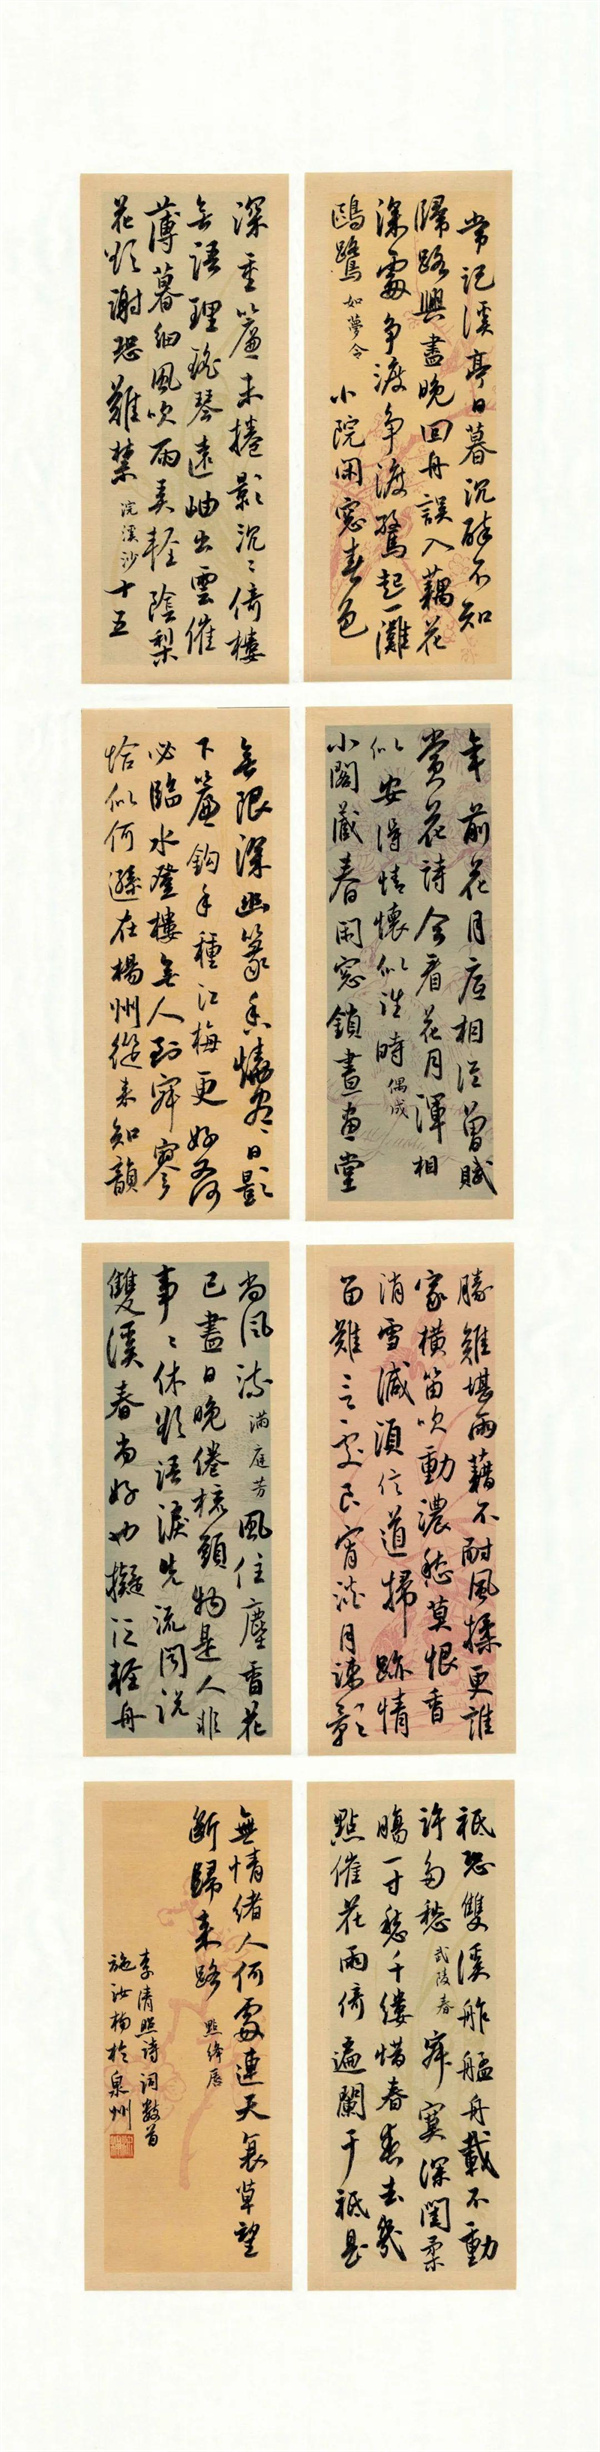 常記溪亭日暮沉醉不知
歸路興盡晚回舟誤入藕花
深處爭渡爭渡驚起一灘
鷗鷺 如夢令 小院閑窗春色
深重簾未捲影沉〻倚樓
無語理瑤琴遠岫出雲催
薄暮細風吹雨弄輕陰梨
花欲謝恐難禁 浣溪沙 十五
年前花月底相從曾賦
賞花詩今看花月渾相
似安得情懷似往時 偶成
小閣藏春閑窗鎖晝畫堂
無限深幽篆香燒盡日影
下簾鈎手種江梅更好又何
必臨水登樓無人到寂寥
恰似何遜在楊州從來知韻
勝難堪雨藉不耐風揉更誰
家橫笛吹動濃愁莫恨香
消雪減須信道掃跡情
留難言處良宵淡月疏影
尚風流 滿庭芳 風住塵香花
已盡日晚倦梳頭物是人非
事〻休欲語淚先流聞說
雙溪春尚好也擬泛輕舟
祗恐雙溪舴艋舟載不動
許多愁 武陵春 寂寞深閨柔
腸一寸愁千縷惜春春去幾
點催花雨倚遍闌干祗是
無情緒人何處連天衰草望
斷歸來路 點絳唇
李清照詩詞數首
施汝於泉州